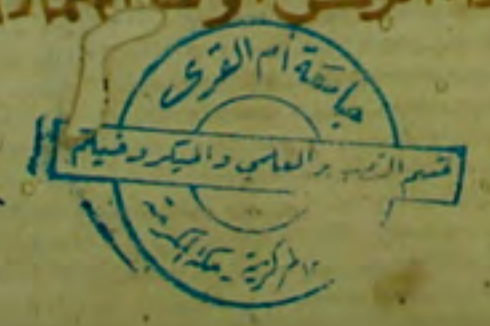 جامعة أم القرى
قسم التصوير العلمي والميكروفيلم
المركزية - مكة المكرمة